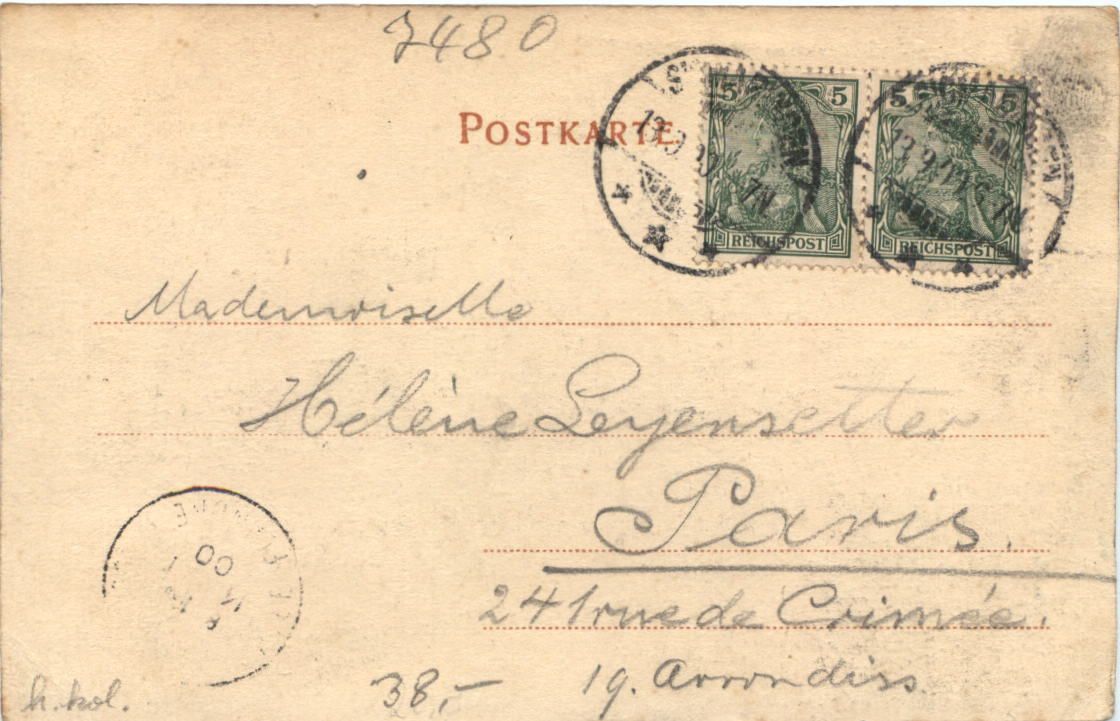 7480
POSTKARTE
5 5 5 5
SIGMARINGEN
REICHSPOST REICHSPOST
Mademoiselle
Hélène Leyensetter
Paris.
241 rue de Crimée.
19. Arrondiss.
00
h. kol.
38,-